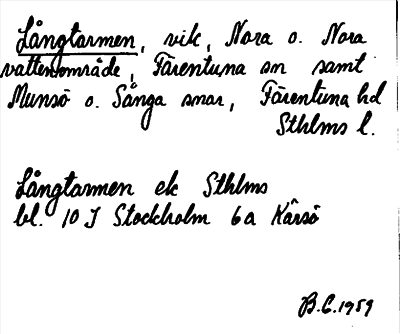 Långtarmen, vik, Nora o. Nora
vattenområde, Färentuna sn samt
Munsö o. Sånga snar, Färentuna hd
Sthlms l.
Långtarmen ek Sthlms
bl. 10 I Stockholm 6a Kärsö
B.C. 1959